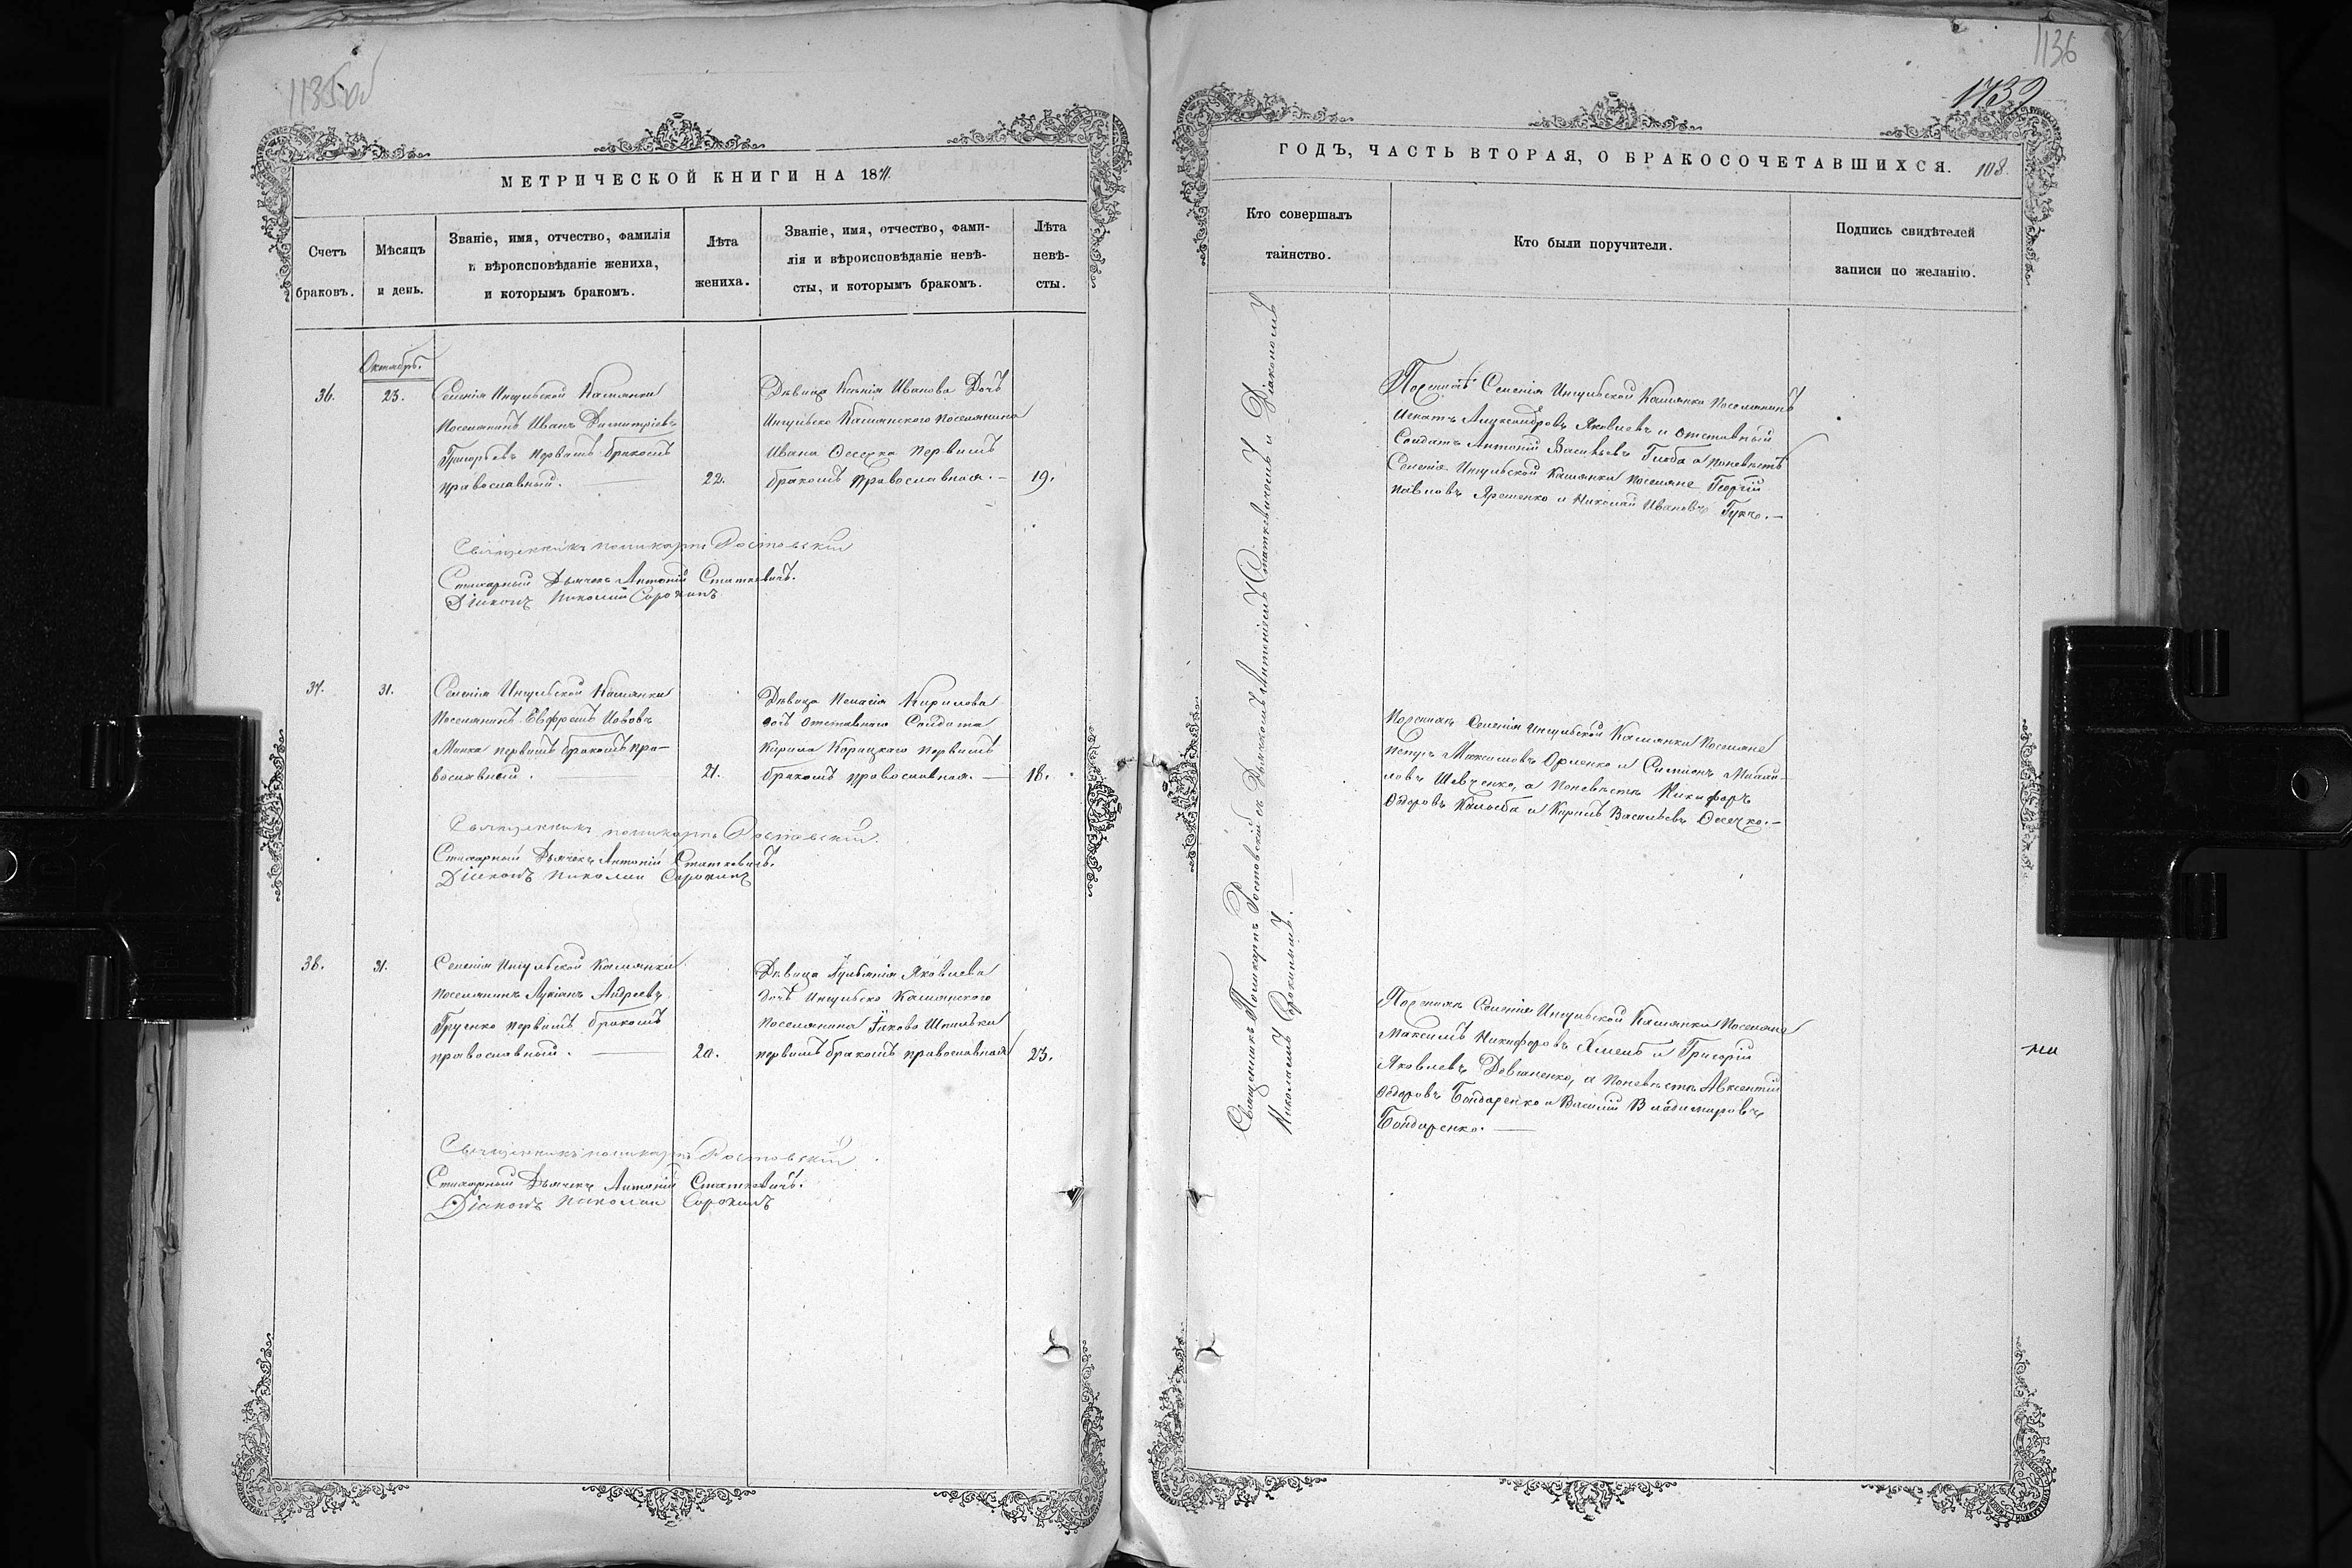 1135об
МЕТРИЧЕСКОЙ КНИГИ НА 1871.
Счетъ
браковъ.
Мѣсяцъ
и день.
Званіе, имя, отчество, фамилія
и вѣроисповѣданіе жениха,
и которымъ бракомъ.
Лѣта
жениха.
Званіе, имя, отчество, фами-
лія и вѣроисповѣданіе невѣ-
сты, и которымъ бракомъ.
Лѣта
невѣ-
сты.
Октябрь.
36.
23.
Селенія Ингульской Каменки
Поселянинъ Иванъ Димитріевъ
Григорьевъ первымъ бракомъ
православный.
22.
Дѣвица Ксенія Иванова Дочь
Ингульско Каменского поселянина
Ивана Осечка первымъ
бракомъ православная.
19.
Священникъ Поликарпъ Ростовскій
Стихарный Дьячекъ Антоній Статкевичъ.
Діаконъ Николай Сорокинъ
37.
31.
Селенія Ингульской Каменки
Поселянинъ Евфремъ Іововъ
Манка первымъ бракомъ пра-
вославный.
21.
Дѣвица Пелагія Кирилова
дочь отставнаго Солдата
Кирила Корицкаго первымъ
бракомъ православная.
18.
Священникъ Поликарпъ Ростовскій.
Стихарный Дьячекъ Антоній Статкевичъ.
Діаконъ Николай Сорокинъ
38.
31.
Селенія Ингульской Каменки
Поселянинъ Лукіанъ Андреевъ
Груенко первымъ бракомъ
православный.
20.
Дѣвица Іуліанія Яковлева
дочь Ингульско Каменского
Поселянина Іакова Шпилька
первымъ бракомъ православная
23.
Священникъ Поликарпъ Ростовскій
Стихарный Дьячекъ Антоній Статкевичъ.
Діаконъ Николай Сорокинъ
1136
1139
ГОДЪ, ЧАСТЬ ВТОРАЯ, О БРАКОСОЧЕТАВШИХСЯ. 108.
Кто совершалъ
таинство.
Кто были поручители.
Подпись свидѣтелей
записи по желанію.
Священникъ Поликарпъ Ростовскій съ Дьячкомъ Антоніемъ Статкевичемъ и Діакономъ
Николаемъ Сорокинымъ.
По женихѣ Селенія Ингульской Каменки Поселянинъ
Игнатъ Александровъ Яковлевъ и отставный
Солдатъ Антоній Васильевъ Глоба а поневѣстѣ
Селенія Ингульской Каменки поселяне Георгій
Павловъ Яременко и Николай Ивановъ Гукъ.
По женихѣ Селенія Ингульской Каменки Поселяне
Петръ Максимовъ Орленко и Симеонъ Михай-
ловъ Шевченко, а поневѣстѣ Никифоръ
Федоровъ Калюба и Кирилъ Васильевъ Осечко.
По женихѣ Селенія Ингульской Каменки Поселяне
Максимъ Никифоровъ Хмель и Григорій
Яковлевъ Довженко, а поневѣстѣ Авксентій
Федоровъ Бондаренко и Василій Владимировъ
Бондаренко.